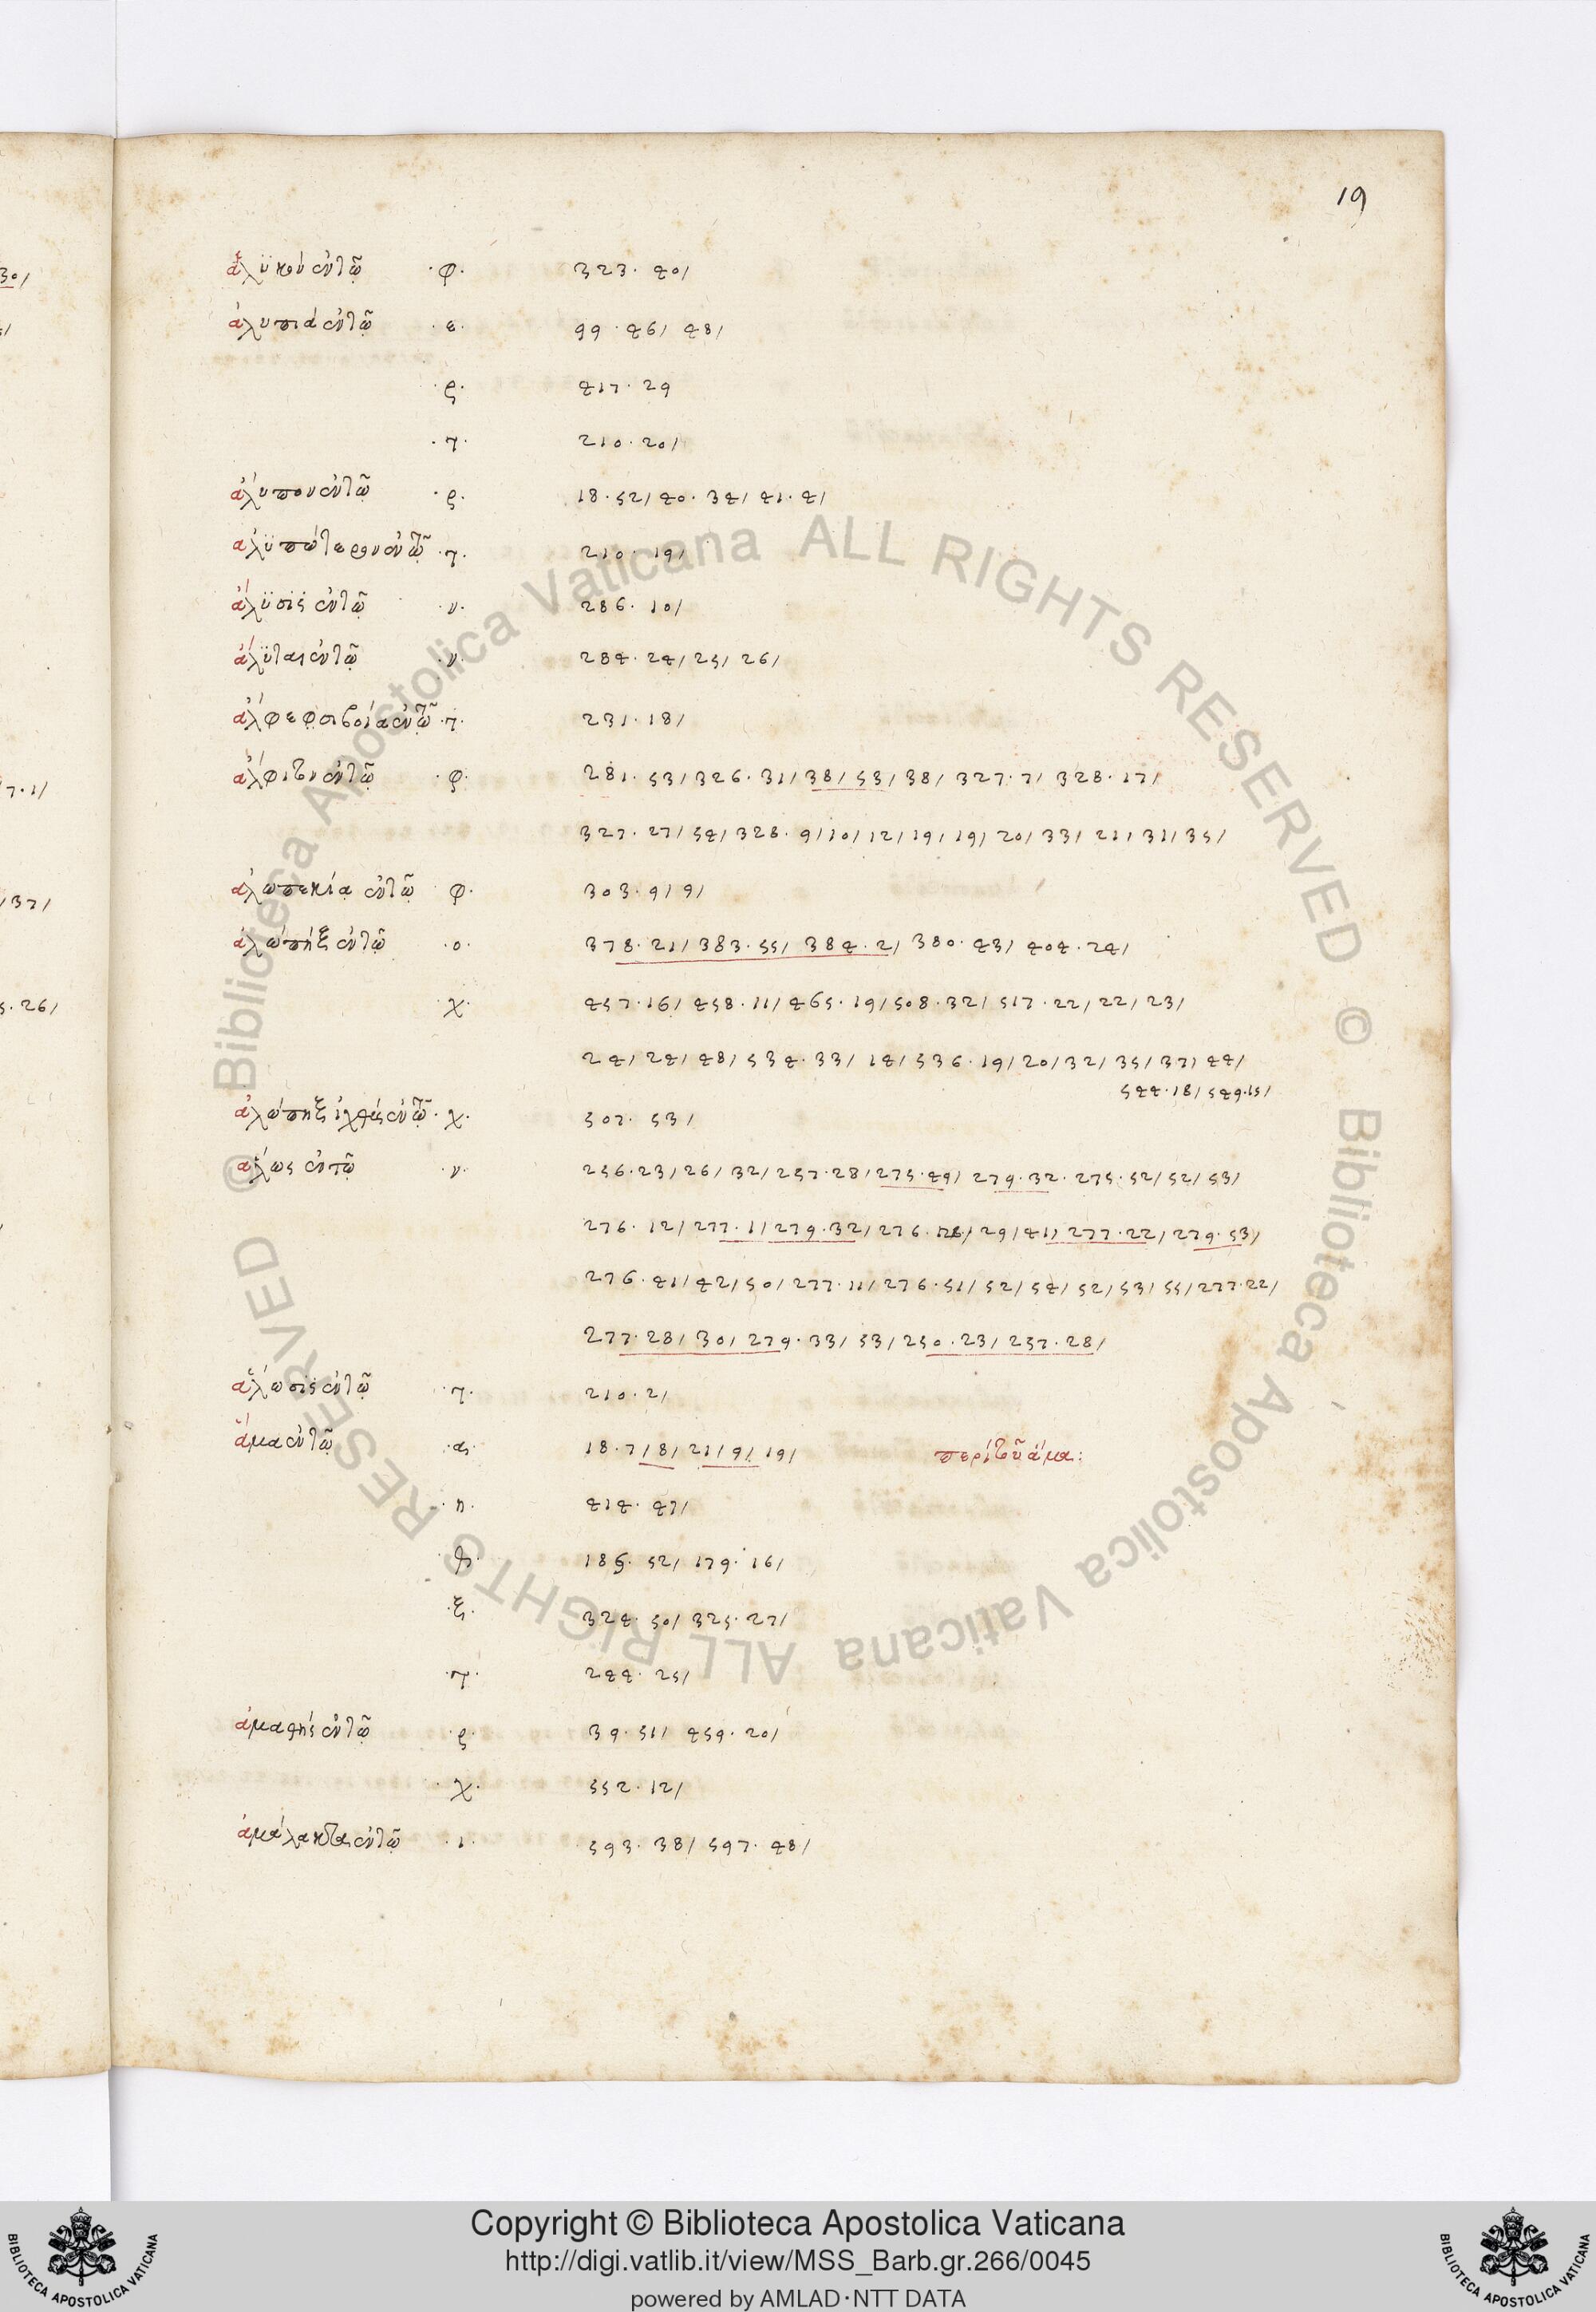 19
ἁλϋκὸν ἐν τῶ ·φ· 323. 40/
ἀλυπία ἐν τῶ ·ε· 99. 46/ 48/
·ς· 417. 29
·τ· 210. 20/
ἄλυπον ἐν τῶ ·ς· 18. 52/ 40. 34/ 41. 4/
ἀλϋπότερον ἐν τῶ ·τ· 210. 19/
ἄλϋσις ἐν τῶ ·ν· 286. 10/
ἀλϋται ἐν τῶ ·ν· 284. 24/ 25/ 26/
ἀλφεφσιβοία ἐν τῶ ·τ· 231. 18/
ἄλφιτον ἐν τῶ ·φ· 281. 53/ 326. 31/ 38/ 53/ 38/ 327. 7/ 328. 17/
327. 27/ 54/ 328. 9/ 10/ 12/ 19/ 19/ 20/ 33/ 21/ 31/ 35/
ἀλωπεκία ἐν τῶ φ· 303. 9/ 9/
ἀλώπηξ ἐν τῶ ·ο· 378. 21/ 383. 55/ 384. 2/ 380. 43/ 404. 24/
χ· 457. 16/ 458. 11/ 465. 19/ 508. 32/ 517. 22/ 22/ 23/
24/ 24/ 48/ 534. 33/ 14/ 536. 19/ 20/ 32/ 35/ 37/ 44/
544. 18/ 549. 15/
ἀλώπηξ ἰχθὺς ἐν τῶ · χ· 507. 53/
ἅλως ἐν τῶ ·ν· 256. 23/ 26/ 32/ 257. 28/ 275. 49/ 279. 32. 275. 52/ 52/ 53/
276. 12/ 277. 1/ 279. 32/ 276. 29/ 41/ 277. 22/ 279. 53/
276. 41/ 42/ 50/ 277. 11/ 276. 51/ 52/ 54/ 52/ 53/ 55/ 277. 22/
277. 28/ 30/ 279. 33/ 53/ 250. 23/ 257. 28/
ἅλωσις ἐν τῶ ·τ· 210. 2/
ἅμα ἐν τῶ ·α· 18. 7/ 8/ 21/ 9/ 19/ περὶ τοῦ ἅμα:
·η· 414. 47/
·θ· 186. 52/ 179. 16/
·ξ· 324. 50/ 325. 27/
·τ· 244. 25/
ἀμαθὴς ἐν τῶ ς· 39. 51/ 459. 20/
· χ· 552. 12/
ἀμάλακτα ἐν τῶ ·ι· 593. 38/ 597. 48/
30/
7. 1/
/37/
5. 26/
© Biblioteca Apostolica Vaticana ALL RIGHTS RESERVED © Biblioteca Apostolica Vaticana ALL RIGHTS RESERVED
Copyright © Biblioteca Apostolica Vaticana
http://digi.vatlib.it/view/MSS_Barb.gr.266/0045
powered by AMLAD·NTT DATA
BIBLIOTECA APOSTOLICA VATICANA
BIBLIOTECA APOSTOLICA VATICANA